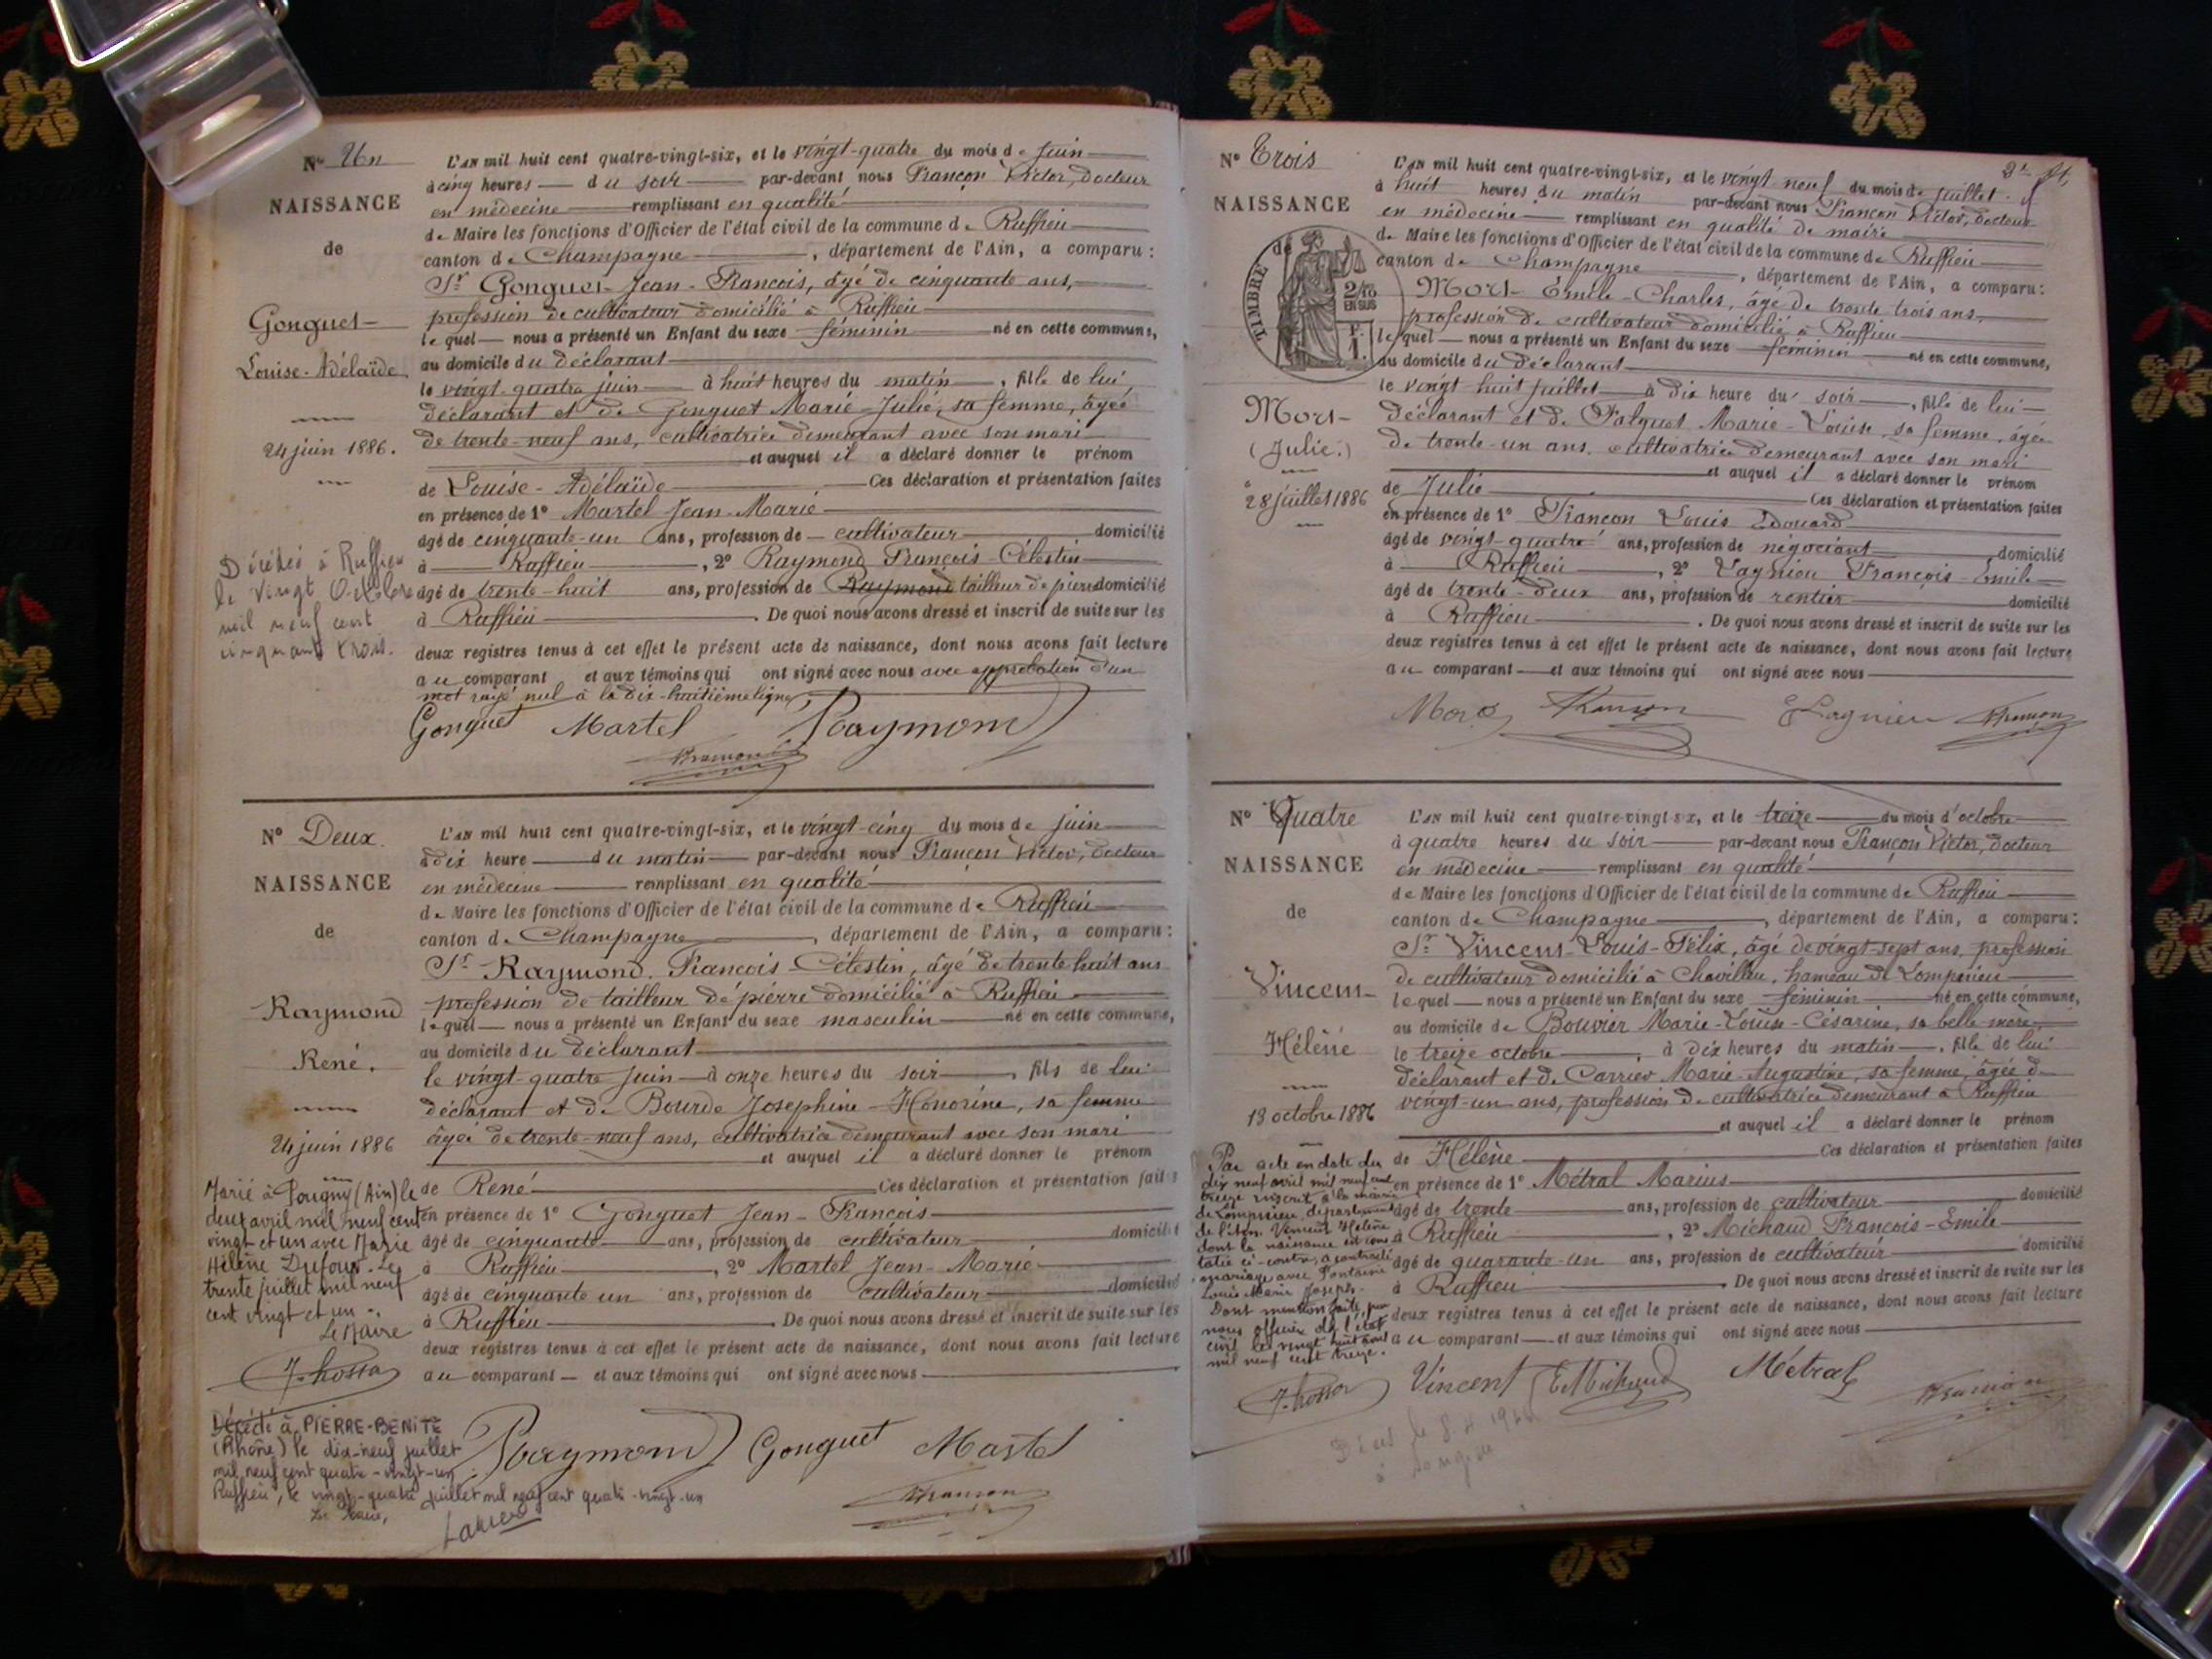 N° Un
NAISSANCE
de
Gonguet
Louise-Adélaïde
24 juin 1886.
Décédée à Ruffieu
le vingt Octobre
mil neuf cent
cinquante trois.
L'an mil huit cent quatre-vingt-six, et le vingt-quatre du mois de juin
à cinq heures du soir par-devant nous Françon Victor, docteur
en médecine remplissant en qualité
de Maire les fonctions d'Officier de l'état civil de la commune de Ruffieu
canton de Champagne, département de l'Ain, a comparu :
Sr Gonguet Jean-François, âgé de cinquante ans,
profession de cultivateur domicilié à Ruffieu
lequel nous a présenté un Enfant du sexe féminin né en cette commune,
au domicile du déclarant
le vingt-quatre juin à huit heures du matin, fille de lui
déclarant et de Gonguet Marie-Julie, sa femme, âgée
de trente-neuf ans, cultivatrice demeurant avec son mari
et auquel il a déclaré donner le prénom
de Louise-Adélaïde Ces déclaration et présentation faites
en présence de 1° Martel Jean-Marie
âgé de cinquante-un ans, profession de cultivateur domicilié
à Ruffieu, 2° Raymond François-Célestin
âgé de trente-huit ans, profession de Raymond tailleur de pierre domicilié
à Ruffieu. De quoi nous avons dressé et inscrit de suite sur les
deux registres tenus à cet effet le présent acte de naissance, dont nous avons fait lecture
au comparant et aux témoins qui ont signé avec nous avec approbation d'un
mot rayé nul à la dix-huitième ligne
Gonguet Martel Raymond
Françon
N° Deux.
NAISSANCE
de
Raymond
René.
24 juin 1886
Marié à Pougny (Ain) le
deux avril mil neuf cent
vingt et un avec Marie
Hélène Dufour. Le
trente juillet mil neuf
cent vingt et un.
Le Maire
Décédé à PIERRE-BENITE
(Rhône) le dix-neuf juillet
mil neuf cent quatre-vingt-un
Ruffieu, le vingt-quatre juillet mil neuf cent quatre-vingt-un
Le Maire,
L'an mil huit cent quatre-vingt-six, et le vingt-cinq du mois de juin
à dix heure du matin par-devant nous Françon Victor, docteur
en médecine remplissant en qualité
de Maire les fonctions d'Officier de l'état civil de la commune de Ruffieu
canton de Champagne, département de l'Ain, a comparu :
Sr Raymond François-Célestin, âgé de trente huit ans
profession de tailleur de pierre domicilié à Ruffieu
lequel nous a présenté un Enfant du sexe masculin né en cette commune,
au domicile du déclarant
le vingt-quatre juin à onze heures du soir, fils de lui
déclarant et de Bourde Josephine-Honorine, sa femme
âgée de trente-neuf ans, cultivatrice demeurant avec son mari
et auquel il a déclaré donner le prénom
de René Ces déclaration et présentation faites
en présence de 1° Gonguet Jean-François
âgé de cinquante ans, profession de cultivateur domicilié
à Ruffieu, 2° Martel Jean-Marie
âgé de cinquante un ans, profession de cultivateur domicilié
à Ruffieu. De quoi nous avons dressé et inscrit de suite sur les
deux registres tenus à cet effet le présent acte de naissance, dont nous avons fait lecture
au comparant et aux témoins qui ont signé avec nous
Raymond Gonguet Martel
Françon
N° Trois
NAISSANCE
de
TIMBRE
2/10
EN SUS
Mort
(Julie.)
28 juillet 1886
L'an mil huit cent quatre-vingt-six, et le vingt neuf du mois de juillet
à huit heures du matin par-devant nous Françon Victor, docteur
en médecine remplissant en qualité de maire
de Maire les fonctions d'Officier de l'état civil de la commune de Ruffieu
canton de Champagne, département de l'Ain, a comparu :
Mort Emile-Charles, âgé de trente trois ans,
profession de cultivateur domicilié à Ruffieu
lequel nous a présenté un Enfant du sexe féminin né en cette commune,
au domicile du déclarant
le vingt huit juillet à dix heure du soir, fille de lui
déclarant et de Falquet Marie-Louise, sa femme, âgée
de trente-un ans, cultivatrice demeurant avec son mari
et auquel il a déclaré donner le prénom
de Julie Ces déclaration et présentation faites
en présence de 1° Françon Louis Edouard
âgé de vingt-quatre ans, profession de négociant domicilié
à Ruffieu, 2° Lagnieu François-Emile
âgé de trente-deux ans, profession de rentier domicilié
à Ruffieu. De quoi nous avons dressé et inscrit de suite sur les
deux registres tenus à cet effet le présent acte de naissance, dont nous avons fait lecture
au comparant et aux témoins qui ont signé avec nous
Mort Françon Lagnieu Françon
N° Quatre
NAISSANCE
de
Vincent
Hélène
13 octobre 1886
Par acte en date du
dix neuf avril mil neuf cent
treize inscrit à la mairie
de Lompnieu, département
de l'Ain, Vincent Hélène
dont la naissance est cons
tatée ci-contre, a contracté
mariage avec Fontaine
Louis Marie Joseph.
Dont mention faite, par
nous officier de l'état
civil le vingt huit avril
mil neuf cent treize.
L'an mil huit cent quatre-vingt-six, et le treize du mois d'octobre
à quatre heures du soir par-devant nous Françon Victor, docteur
en médecine remplissant en qualité
de Maire les fonctions d'Officier de l'état civil de la commune de Ruffieu
canton de Champagne, département de l'Ain, a comparu :
Sr Vincent Louis-Félix, âgé de vingt-sept ans, profession
de cultivateur domicilié à Chavillieu, hameau de Lompnieu
lequel nous a présenté un Enfant du sexe féminin né en cette commune,
au domicile de Bouvier Marie-Louise-Césarine, sa belle mère
le treize octobre, à dix heures du matin, fille de lui
déclarant et de Carrier Marie-Augustine, sa femme, âgée de
vingt-un ans, profession de cultivatrice demeurant à Ruffieu
et auquel il a déclaré donner le prénom
de Hélène Ces déclaration et présentation faites
en présence de 1° Métral Marius
âgé de trente ans, profession de cultivateur domicilié
à Ruffieu, 2° Michaud François-Emile
âgé de quarante-un ans, profession de cultivateur domicilié
à Ruffieu. De quoi nous avons dressé et inscrit de suite sur les
deux registres tenus à cet effet le présent acte de naissance, dont nous avons fait lecture
au comparant et aux témoins qui ont signé avec nous
Vincent E Michaud Métral
Françon